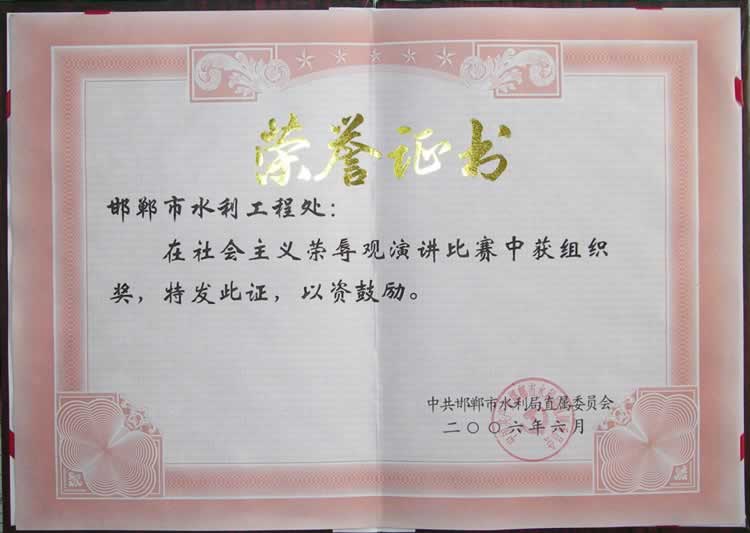 荣誉证书
邯郸市水利工程处：
在社会主义荣辱观演讲比赛中获组织
奖，特发此证，以资鼓励。
中共邯郸市水利局直属委员会
二〇〇六年六月